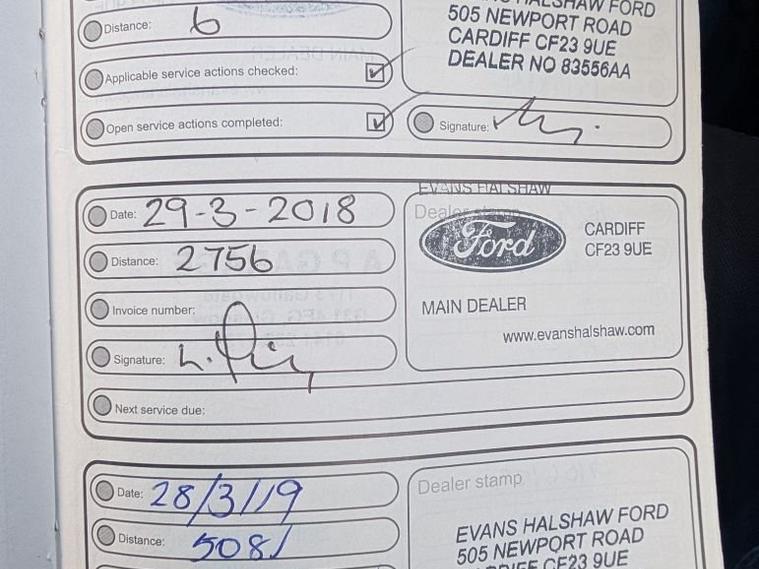 HALSHAW FORD
Distance: 6
505 NEWPORT ROAD
CARDIFF CF23 9UE
DEALER NO 83556AA
Applicable service actions checked:
Open service actions completed:
Signature:
EVANS HALSHAW
Date: 29-3-2018
Dealer stamp
Ford
CARDIFF
CF23 9UE
Distance: 2756
Invoice number:
MAIN DEALER
www.evanshalshaw.com
Signature:
Next service due:
Date: 28/3/19
Dealer stamp
Distance: 5081
EVANS HALSHAW FORD
505 NEWPORT ROAD
CARDIFF CF23 9UE